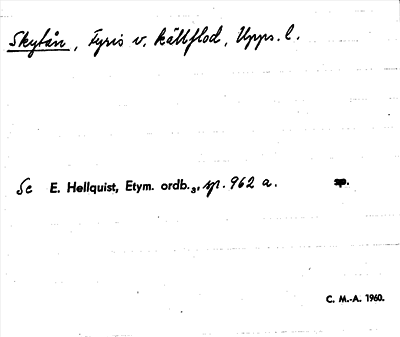 Skytån, Fyris v. källflod, Upps. l.
Se E. Hellquist, Etym. ordb.₃, sp. 962 a.
C. M.-A. 1960.